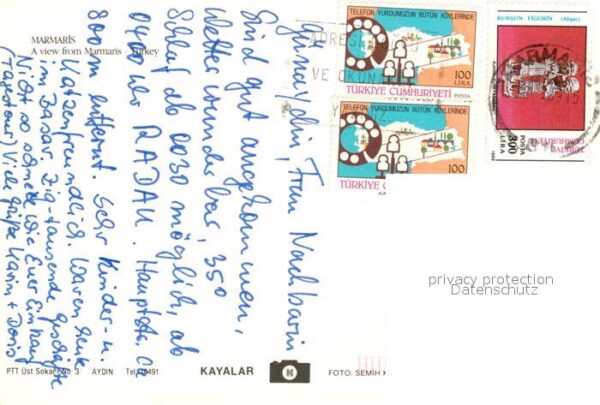 MARMARİS
A view from Marmaris Turkey
Günaydin, Frau Nachbarin
Sind gut angekommen,
Wetter wunderbar, 35°
Schlaf ab 0030 möglich, ab
0400 der RADAU. Hauptstr. ca
80 m entfernt. Sehr Kinder- u.
Katzenfreundlich. Waren heute
im Basar. Zig-tausende Geschäfte
Nicht so schnell wie Euer Einkauf
(Tagestour) Viele Grüße Karin + Doris
PTT Üst Sokak No. 3 AYDIN Tel:
KAYALAR
FOTO: SEMİH
TELEFON YURDUMUZUN BÜTÜN KÖYLERİNDE
100
LİRA
TÜRKİYE CUMHURİYETİ POSTA
TELEFON YURDUMUZUN BÜTÜN KÖYLERİNDE
100
TÜRKİYE C
KURŞUN FİGÜRİN
POSTA
300
LİRA
TÜRKİYE
CUMHURİYETİ
ADRES
VE OKUNA
privacy protection
Datenschutz